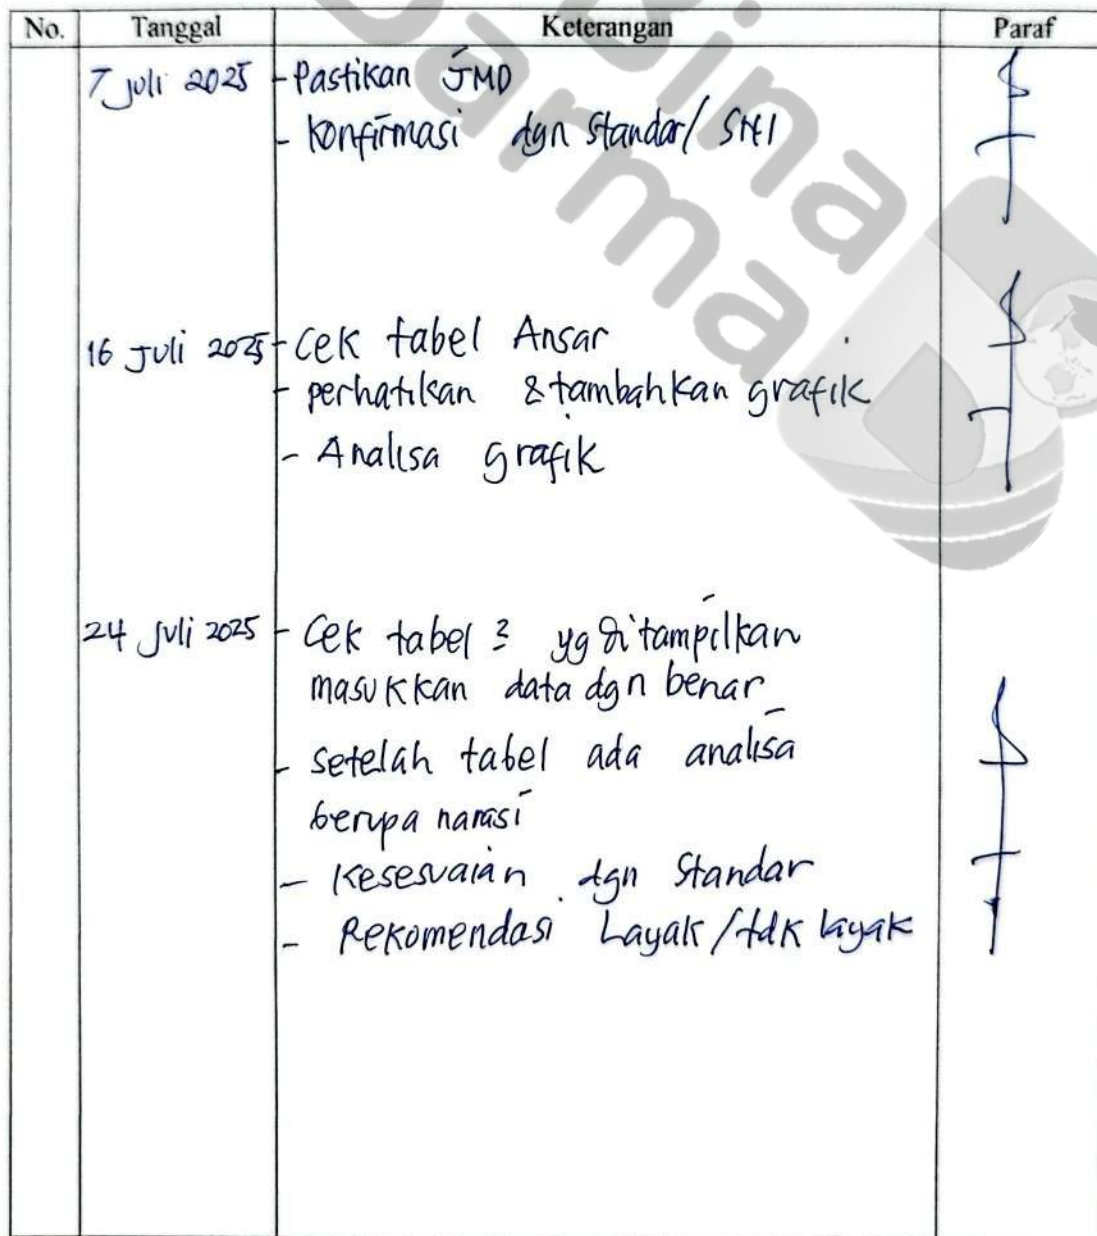 No. Tanggal Keterangan Paraf
7 Juli 2025 - Pastikan JMD
- Konfirmasi dgn Standar/ SNI
16 Juli 2025 - Cek tabel Ansar
- perhatikan & tambahkan grafik
- Analisa grafik
24 Juli 2025 - Cek tabel yg ditampilkan
masukkan data dgn benar
- setelah tabel ada analisa
berupa narasi
- Kesesuaian dgn Standar
- Rekomendasi Layak/tdk layak
bina
Darma